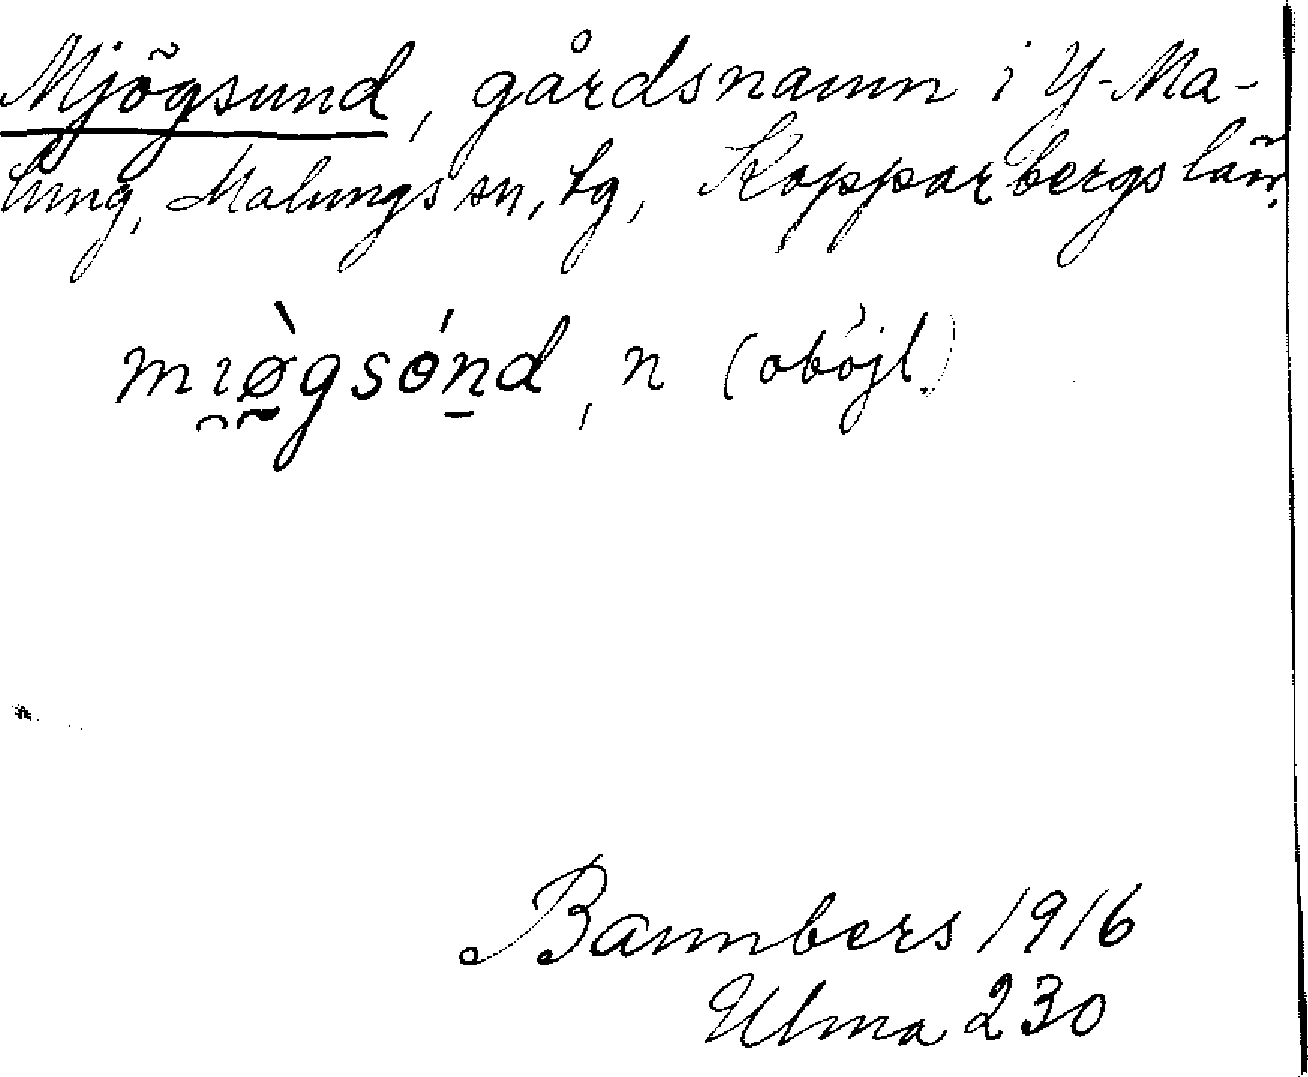 Mjögsund, gårdsnamn i Y-Ma-
lung, Malungs sn, tg, Kopparbergs län.
mı̯ø̀gsón̠d, n (oböjl.)
Bannbers 1916
Ulma 230